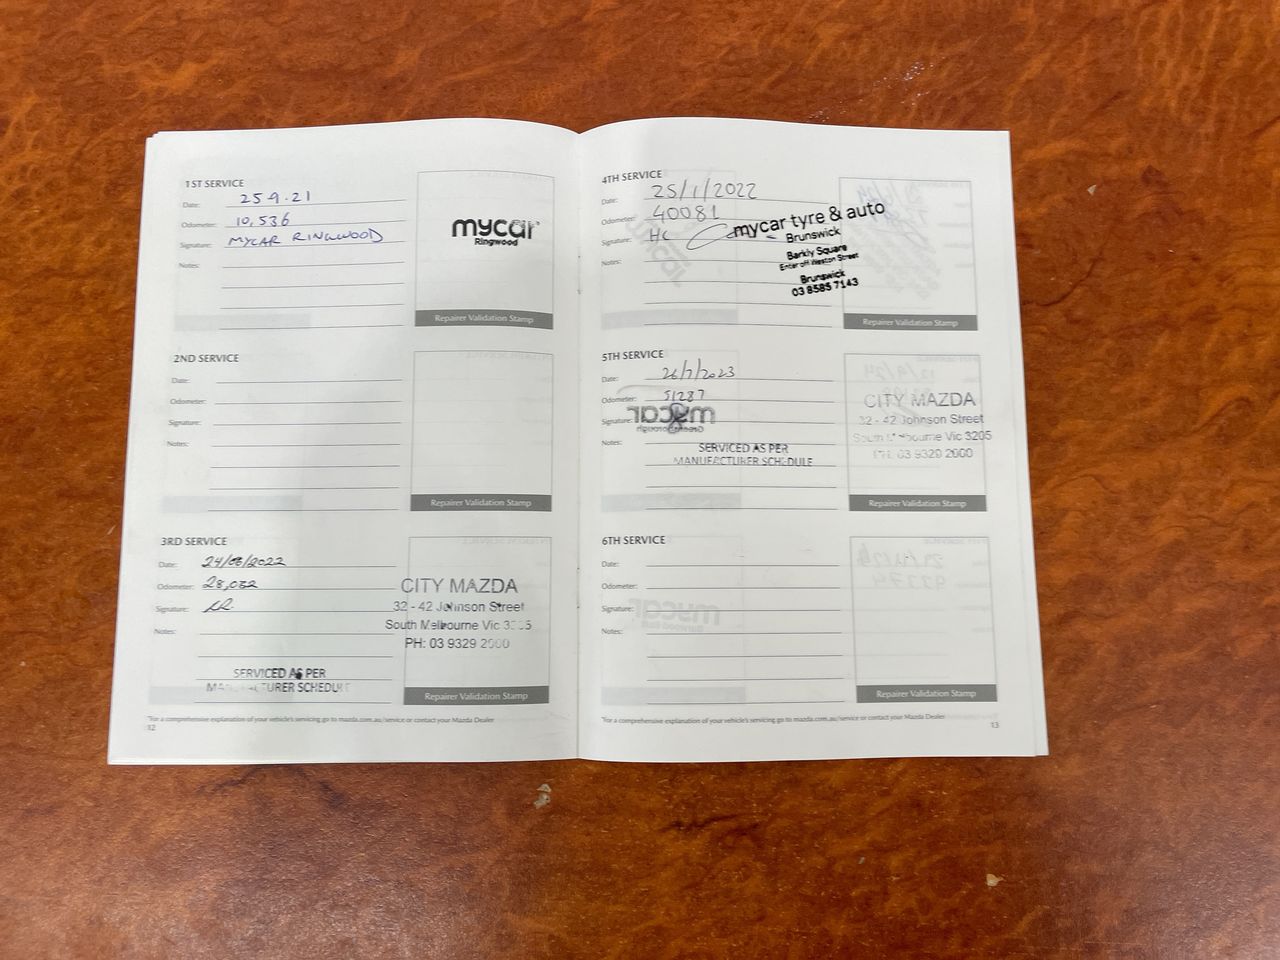 1ST SERVICE
Date: 25.9.21
Odometer: 10,536
Signature: MYCAR RINGWOOD
Notes:
mycar
Ringwood
Repairer Validation Stamp
2ND SERVICE
Date:
Odometer:
Signature:
Notes:
Repairer Validation Stamp
3RD SERVICE
Date: 24/08/2022
Odometer: 28,032
Signature:
Notes:
SERVICED AS PER
MANUFACTURER SCHEDULE
CITY MAZDA
32 - 42 Johnson Street
South Melbourne Vic 3205
PH: 03 9329 2000
Repairer Validation Stamp
*For a comprehensive explanation of your vehicle's servicing go to mazda.com.au/service or contact your Mazda Dealer
12
4TH SERVICE
Date: 25/1/2022
Odometer: 40081
Signature: HC
Notes:
mycar tyre & auto
Brunswick
Barkly Square
Enter off Weston Street
Brunswick
03 8585 7143
Repairer Validation Stamp
5TH SERVICE
Date: 26/7/2023
Odometer: 51287
Signature:
Notes:
SERVICED AS PER
MANUFACTURER SCHEDULE
CITY MAZDA
32 - 42 Johnson Street
South Melbourne Vic 3205
PH: 03 9329 2000
Repairer Validation Stamp
6TH SERVICE
Date:
Odometer:
Signature:
Notes:
Repairer Validation Stamp
*For a comprehensive explanation of your vehicle's servicing go to mazda.com.au/service or contact your Mazda Dealer
13